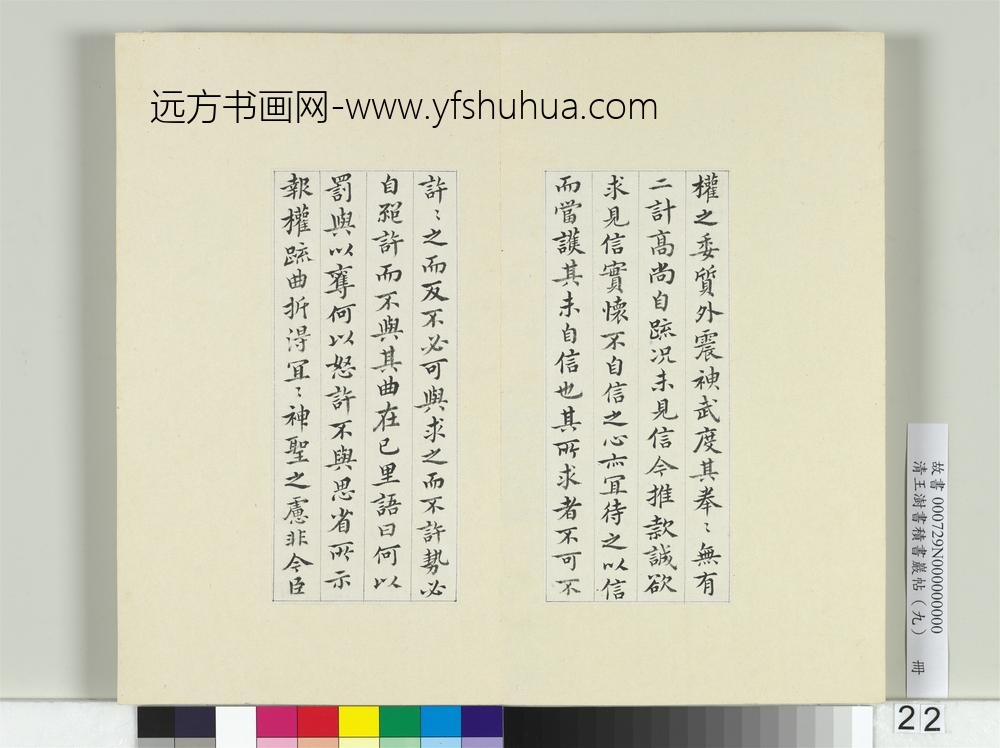 远方书画网-www.yfshuhua.com
權之委質外震神武度其拳〻無有
二計高尚自疏况未見信今推款誠欲
求見信實懷不自信之心亦宜待之以信
而當護其未自信也其所求者不可不
許〻之而反不必可與求之而不許勢必
自絕許而不與其曲在己里語曰何以
罰與以奪何以怒許不與思省所示
報權疏曲折得宜〻神聖之慮非今臣
故書 000729N000000000
清王澍書積書巖帖（九） 冊
22